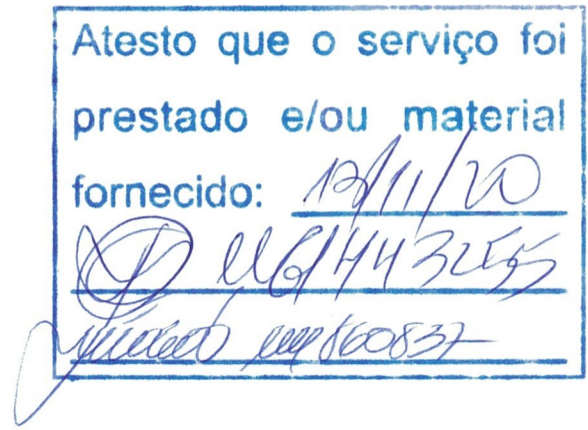 Atesto que o serviço foi
prestado e/ou material
fornecido: 12/11/20
860837